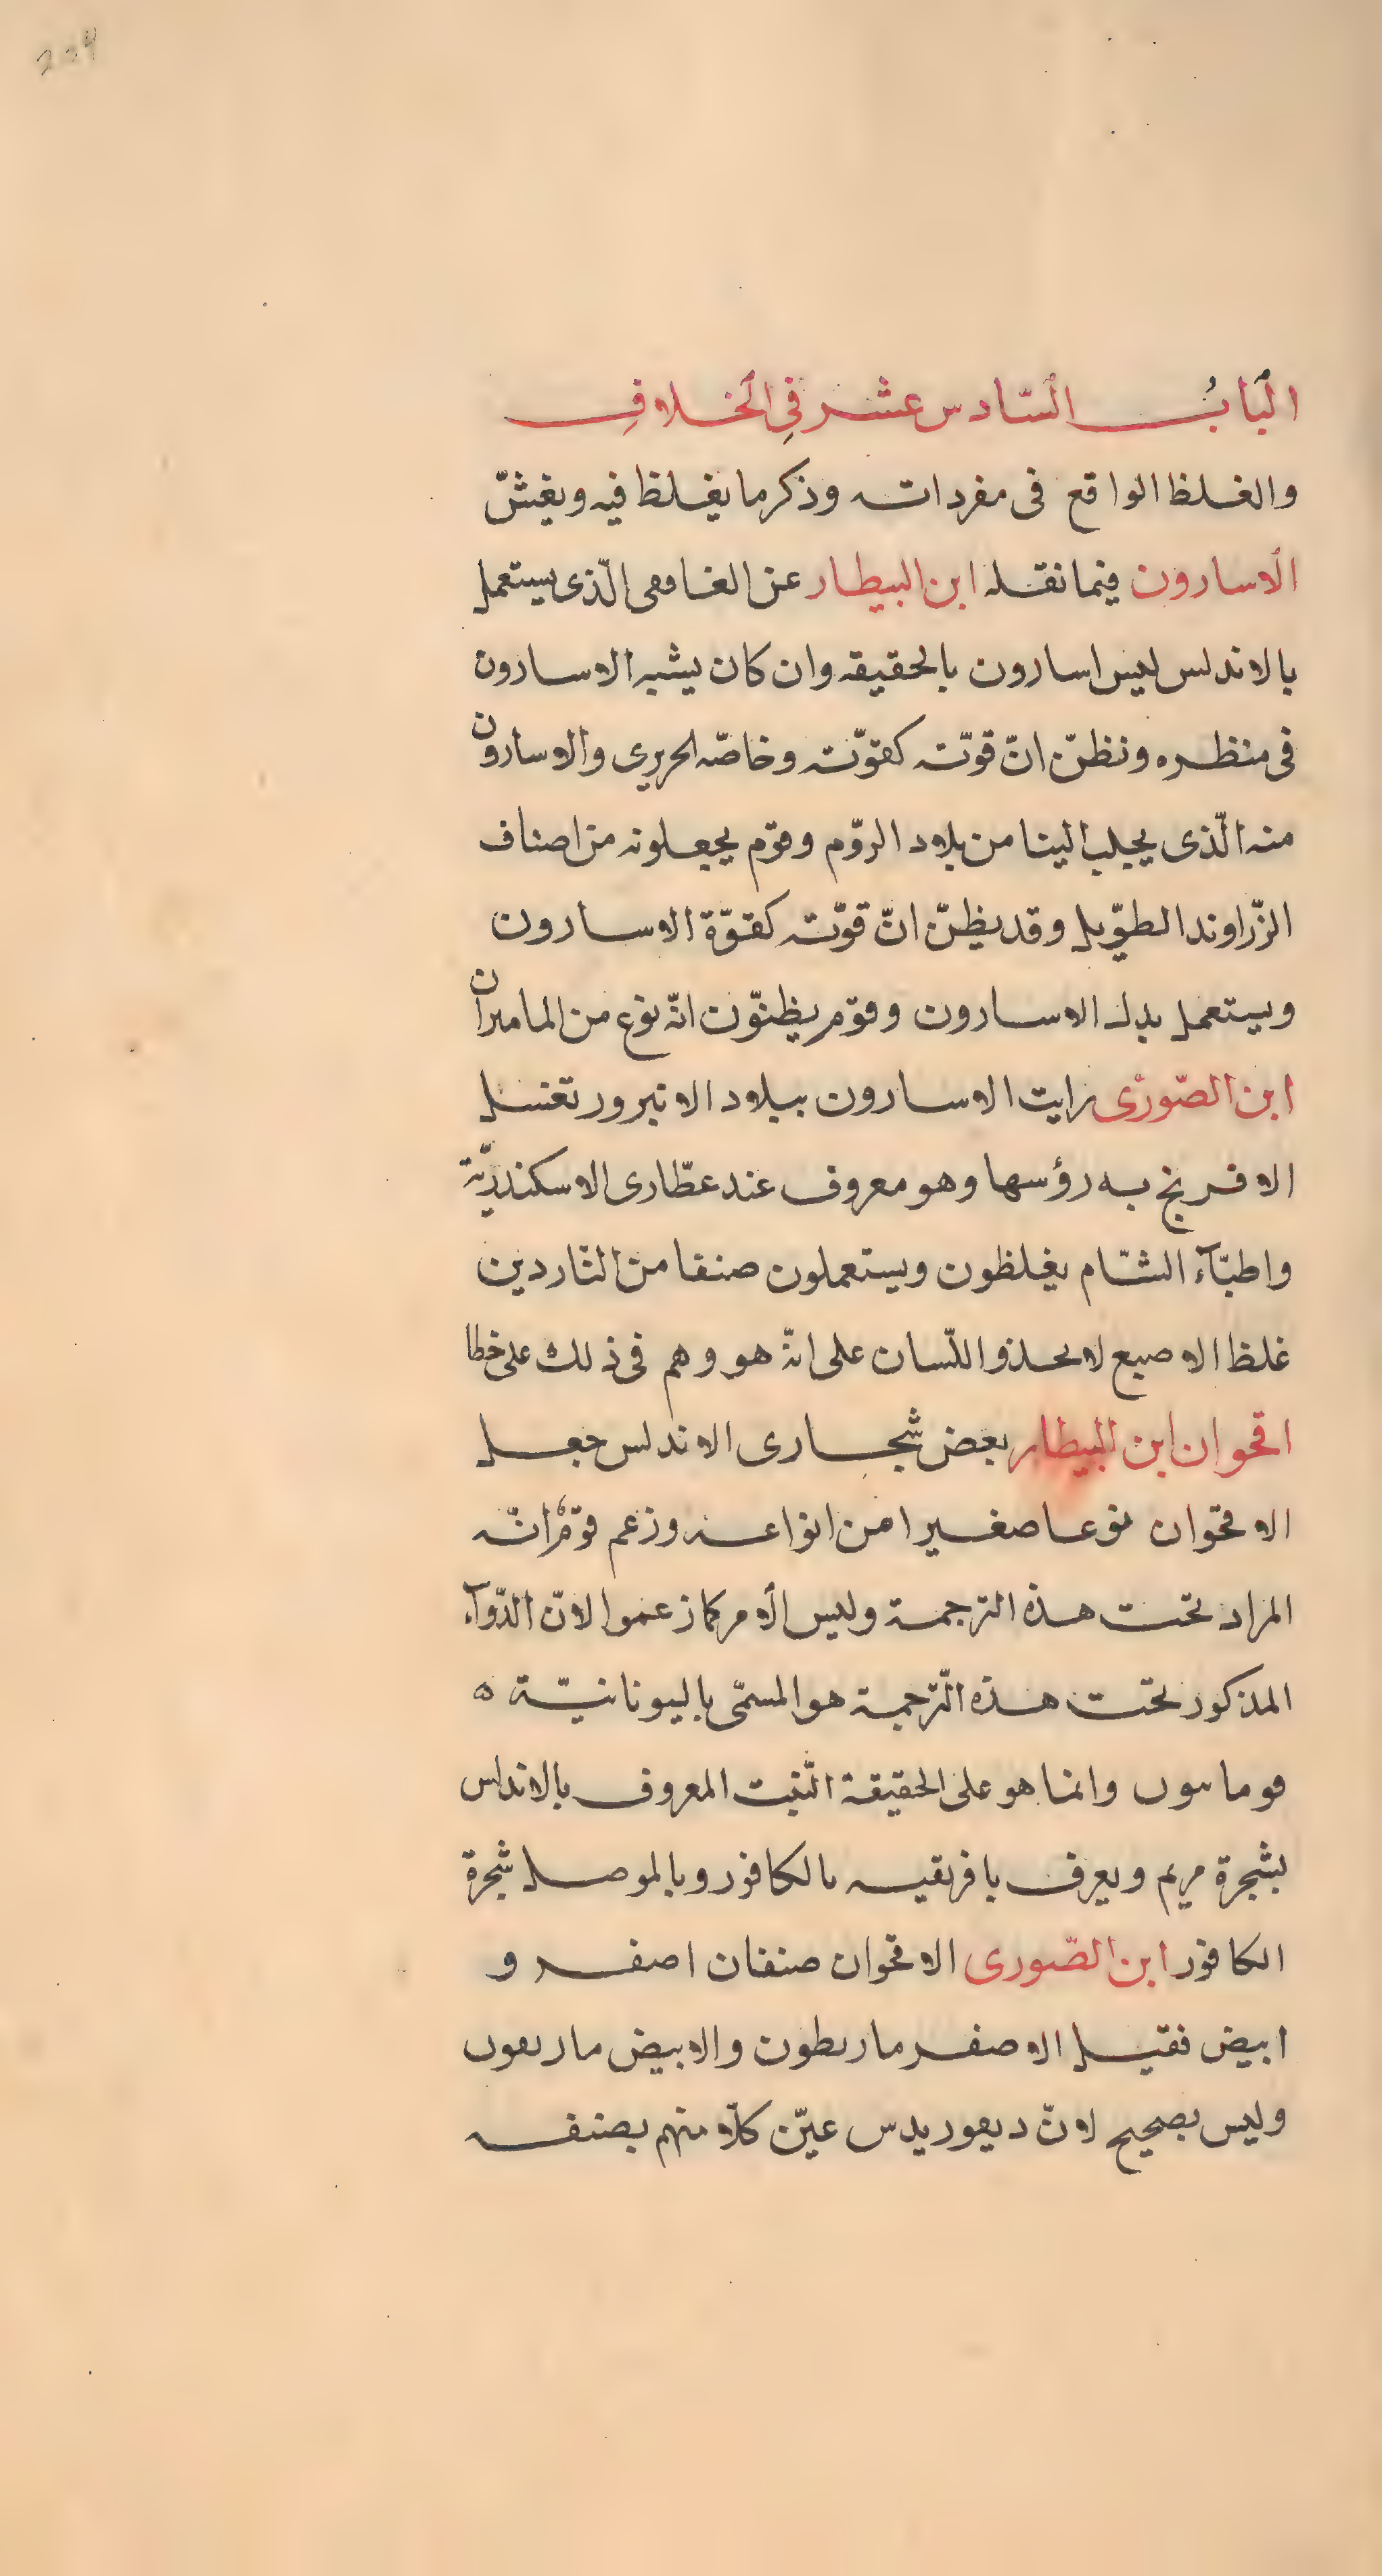 224
الباب السّادس عشر في الخلاف
والغلط الواقع فى مفرداته وذكر ما يغلط فيه ويغشّ
الاسارون فيما نقله ابن البيطار عن الغافعى الّذى يستعمل
بالاندلس ليس اسارون بالحقيقه وان كان يشبه الاسارون
فى منظره ونظنّ انّ قوّته كقوّته وخاصّه الحريرى والاسارون
منه الّذى يجلب الينا من بلاد الروّم وقوم يجعلونه من اصناف
الزّراوند الطوّيل وقد يظنّ انّ قوّته كقوّة الاسارون
ويستعمل بدل الاسارون وقوم يظنّون انّه نوع من المامران
ابن الصّورّى رايت الاسارون ببلاد الانبرور تغسل
الافرنج به رؤسها وهو معروف عند عطّارى الاسكندريّة
واطبّآء الشّام يغلظون ويستعملون صنفا من النّاردين
غلظ الاصبع لا يحذو اللّسان على انّه هو وهم فى ذلك على خطا
اقحوان ابن البيطار بعض شجارى الاندلس جعل
الاقحوان نوعا صغيرا من انواعه وزعم قومٌ انّه
المراد تحت هذه الترجمة وليس الأمر كما زعموا لانّ الدّوآء
المذكور تحت هذه التّرجمة هو المسمّى باليونانيّة ه
وانما هو على الحقيقة النّبت المعروف بالاندلس
بشجرة مريم ويعرف بافريقيه بالكافور وبالموصل شجرة
الكافور ابن الصّورى الاقحوان صنفان اصفر و
ابيض فقيل الاصفر والابيض
وليس بصحيح لانّ ديعوريدس عيّن كلّا منهم بصنف